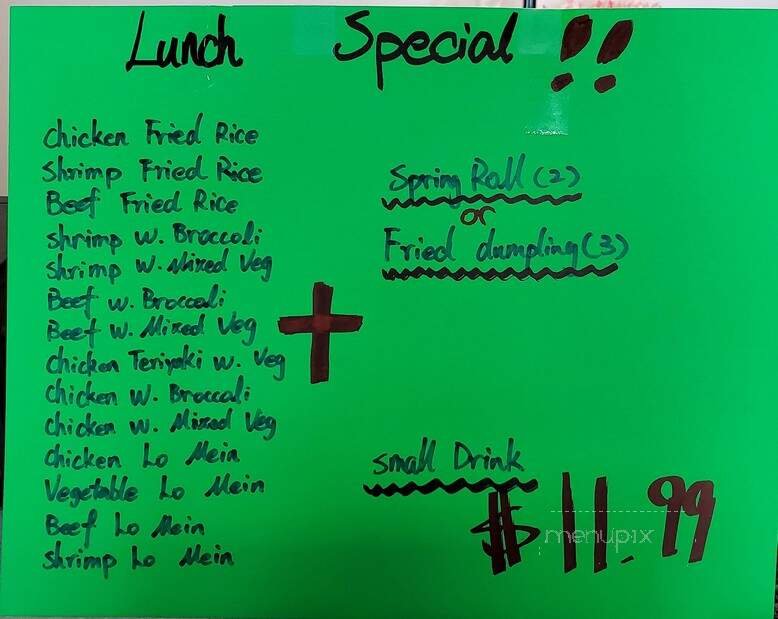 Lunch Special !!
chicken Fried Rice
shrimp Fried Rice
Beef Fried Rice
shrimp w. Broccoli
shrimp w. Mixed Veg
Beef w. Broccoli
Beef w. Mixed Veg
chicken Teriyaki w. Veg
chicken w. Broccoli
chicken w. Mixed Veg
chicken Lo Mein
Vegetable Lo Mein
Beef Lo Mein
shrimp Lo Mein
+
Spring Roll (2)
or
Fried dumpling (3)
small Drink
$11.99
menupix